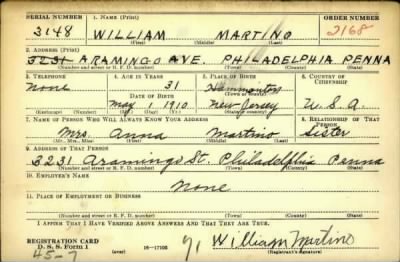 SERIAL NUMBER 1. NAME (Print) ORDER NUMBER
3148 WILLIAM MARTINO 2168
(First) (Middle) (Last)
2. ADDRESS (Print)
3231 ARAMINGO AVE. PHILADELPHIA PENNA
(Number and street or R. F. D. number) (Town) (County) (State)
3. TELEPHONE 4. AGE IN YEARS 5. PLACE OF BIRTH 6. COUNTRY OF CITIZENSHIP
None 31 Hammonton
DATE OF BIRTH (Town or county)
May 1 1910 New Jersey U.S.A.
(Mo.) (Day) (Yr.) (State or country)
7. NAME OF PERSON WHO WILL ALWAYS KNOW YOUR ADDRESS 8. RELATIONSHIP OF THAT PERSON
Mrs. Anna Martino Sister
(Mr., Mrs., Miss) (First) (Middle) (Last)
9. ADDRESS OF THAT PERSON
3231 Aramingo St. Philadelphia Penna
(Number and street or R. F. D. number) (Town) (County) (State)
10. EMPLOYER'S NAME
None
11. PLACE OF EMPLOYMENT OR BUSINESS
(Number and street or R. F. D. number) (Town) (County) (State)
I AFFIRM THAT I HAVE VERIFIED ABOVE ANSWERS AND THAT THEY ARE TRUE.
REGISTRATION CARD
D. S. S. Form 1 (over) 16—17105 William Martino
45-7 (Registrant's signature)